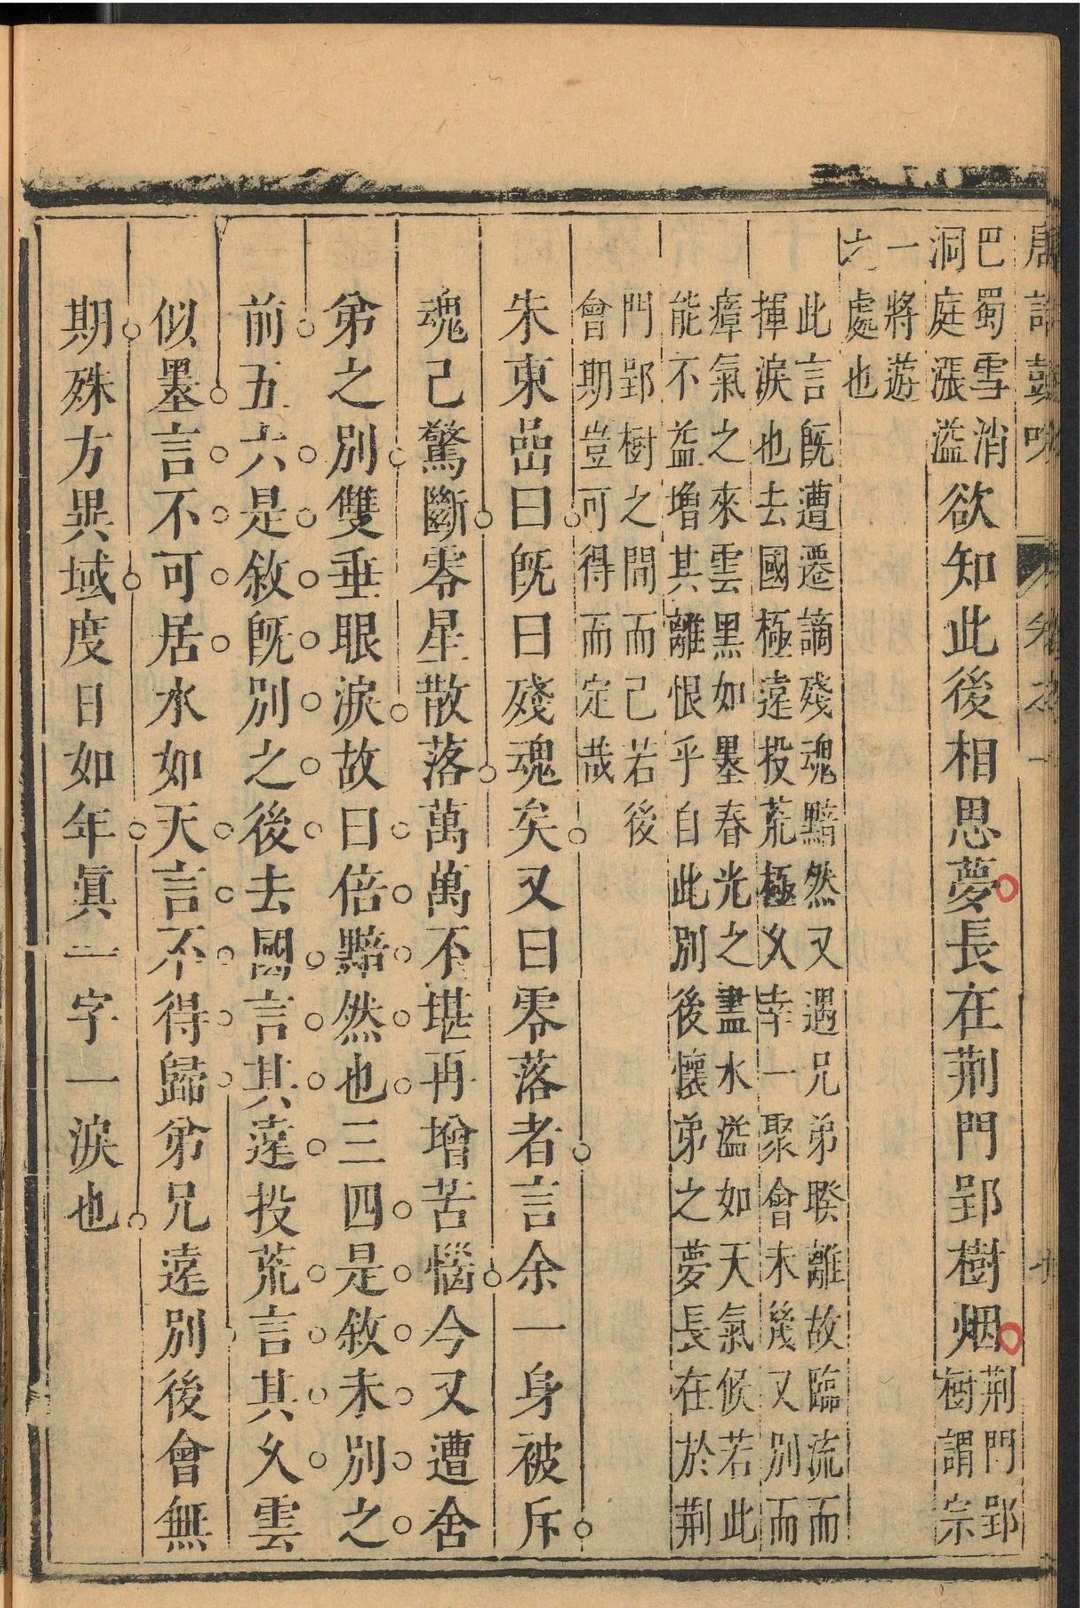 唐詩鼓吹 卷之一 七
巴蜀雪消
洞庭漲溢
欲知此後相思夢長在荆門郢樹烟
荆門郢
樹謂宗
一將遊
之處也
此言旣遭遷謫殘魂黯然又遇兄弟暌離故臨流而
揮淚也去國極遠投荒極久幸一聚會未幾又別而
瘴氣之來雲黑如墨春光之盡水溢如天氣候若此
能不益增其離恨乎自此別後懷弟之夢長在於荆
門郢樹之間而已若後
會期豈可得而定哉
朱東喦曰旣曰殘魂矣又曰零落者言余一身被斥
魂已驚斷零星散落萬萬不堪再增苦惱今又遭舍
弟之別雙垂眼淚故曰倍黯然也三四是敘未別之
前五六是敘旣別之後去國言其遠投荒言其久雲
似墨言不可居水如天言不得歸弟兄遠別後會無
期殊方異域度日如年眞一字一淚也